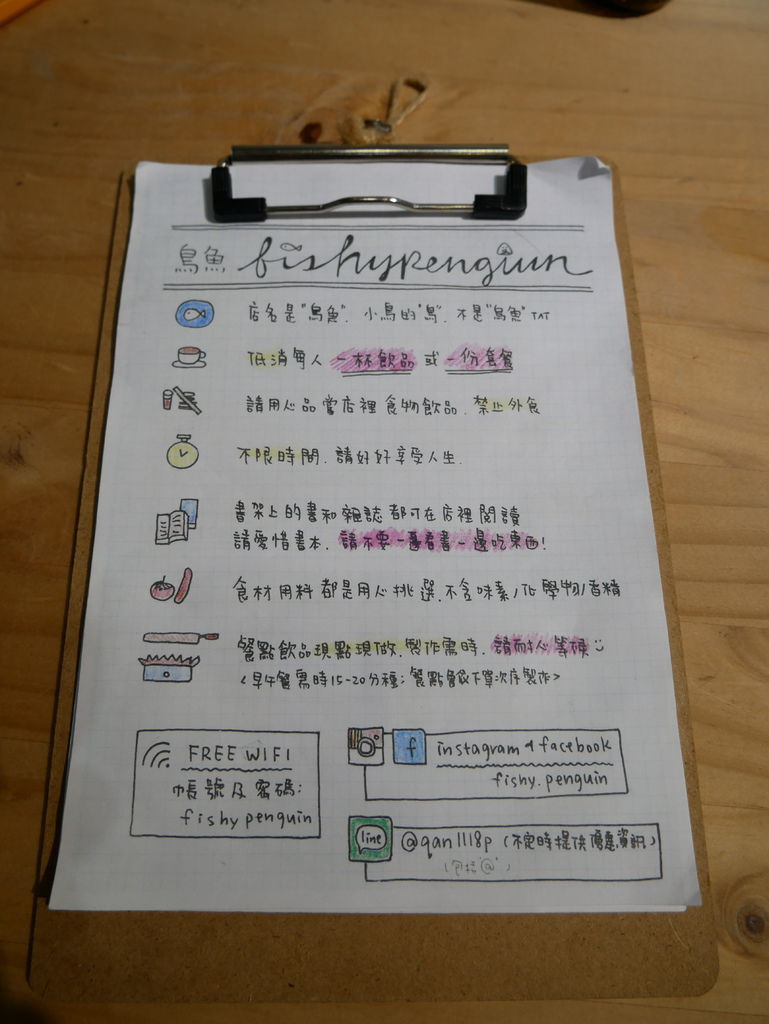 鳥魚 fishypengiun
店名是"鳥魚". 小鳥的"鳥". 不是"烏魚" TAT
低消每人 一杯飲品 或 一份套餐
請用心品嘗店裡食物飲品. 禁止外食
不限時間. 請好好享受人生.
書架上的書和雜誌都可在店裡閱讀
請愛惜書本. 請不要一邊看書一邊吃東西!
食材用料都是用心挑選.不含味素/化學物/香精
餐點飲品現點現做.製作需時.請耐心等候
<早午餐需時15-20分種;餐點會依下單次序製作>
FREE WIFI
帳號及密碼:
fishypenguin
instagram & facebook
fishy.penguin
line
@qan1118p (不定時提供優惠資訊)
(包括"@")